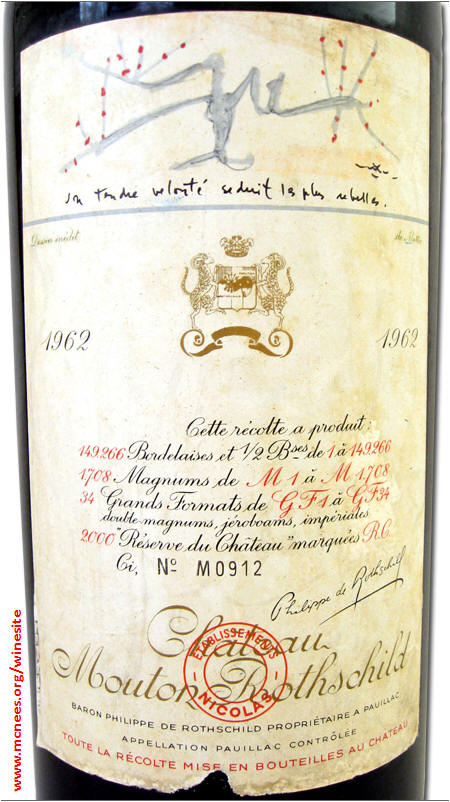 son tendre velouté séduit les plus rebelles.
Dessin inédit de Matta
1962 1962
Cette récolte a produit:
149.266 Bordelaises et 1/2 Bses de 1 à 149.266
1708 Magnums de M 1 à M 1708
34 Grands Formats de GF1 à GF34
double magnums, jéroboams, impériales
2000 "Réserve du Château" marquées R.C.
Ci, No M0912
Philippe de Rothschild
Château
Mouton Rothschild
ETABLISSEMENTS
NICOLAS
BARON PHILIPPE DE ROTHSCHILD PROPRIÉTAIRE A PAUILLAC
APPELLATION PAUILLAC CONTRÔLÉE
TOUTE LA RÉCOLTE MISE EN BOUTEILLES AU CHÂTEAU
www.mcnees.org/winesite